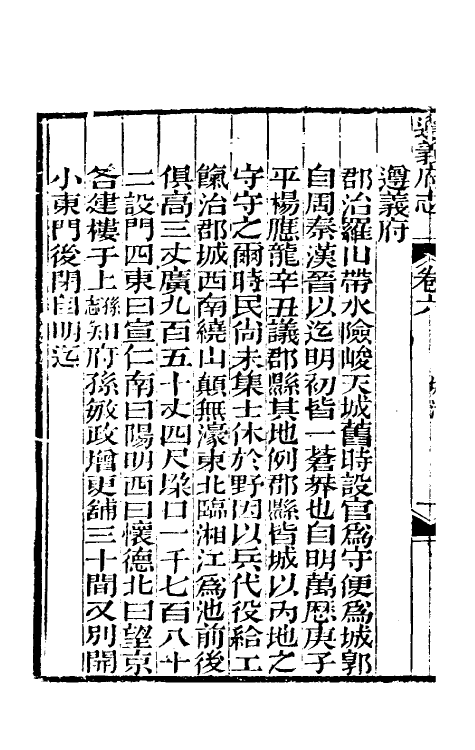 遵義府志
卷六
遵義府
郡治羅山帶水險峻天城舊時設官爲守便爲城郭
自周秦漢晉以迄明初皆一蒼莽也自明萬厯庚子
平楊應龍辛丑議郡縣其地例郡縣皆城以丙地之
守守之爾時民尚未集士休於野因以兵代役給工
餼治郡城西南繞山顛無濠東北臨湘江爲池前後
俱高三丈廣九百五十丈四尺垜口一千七百八十
二設門四東曰宣仁南曰陽明西曰懷德北曰望京
各建樓于上孫知府孫敏政增更舖三十間又別開
小東門後閉自明迄